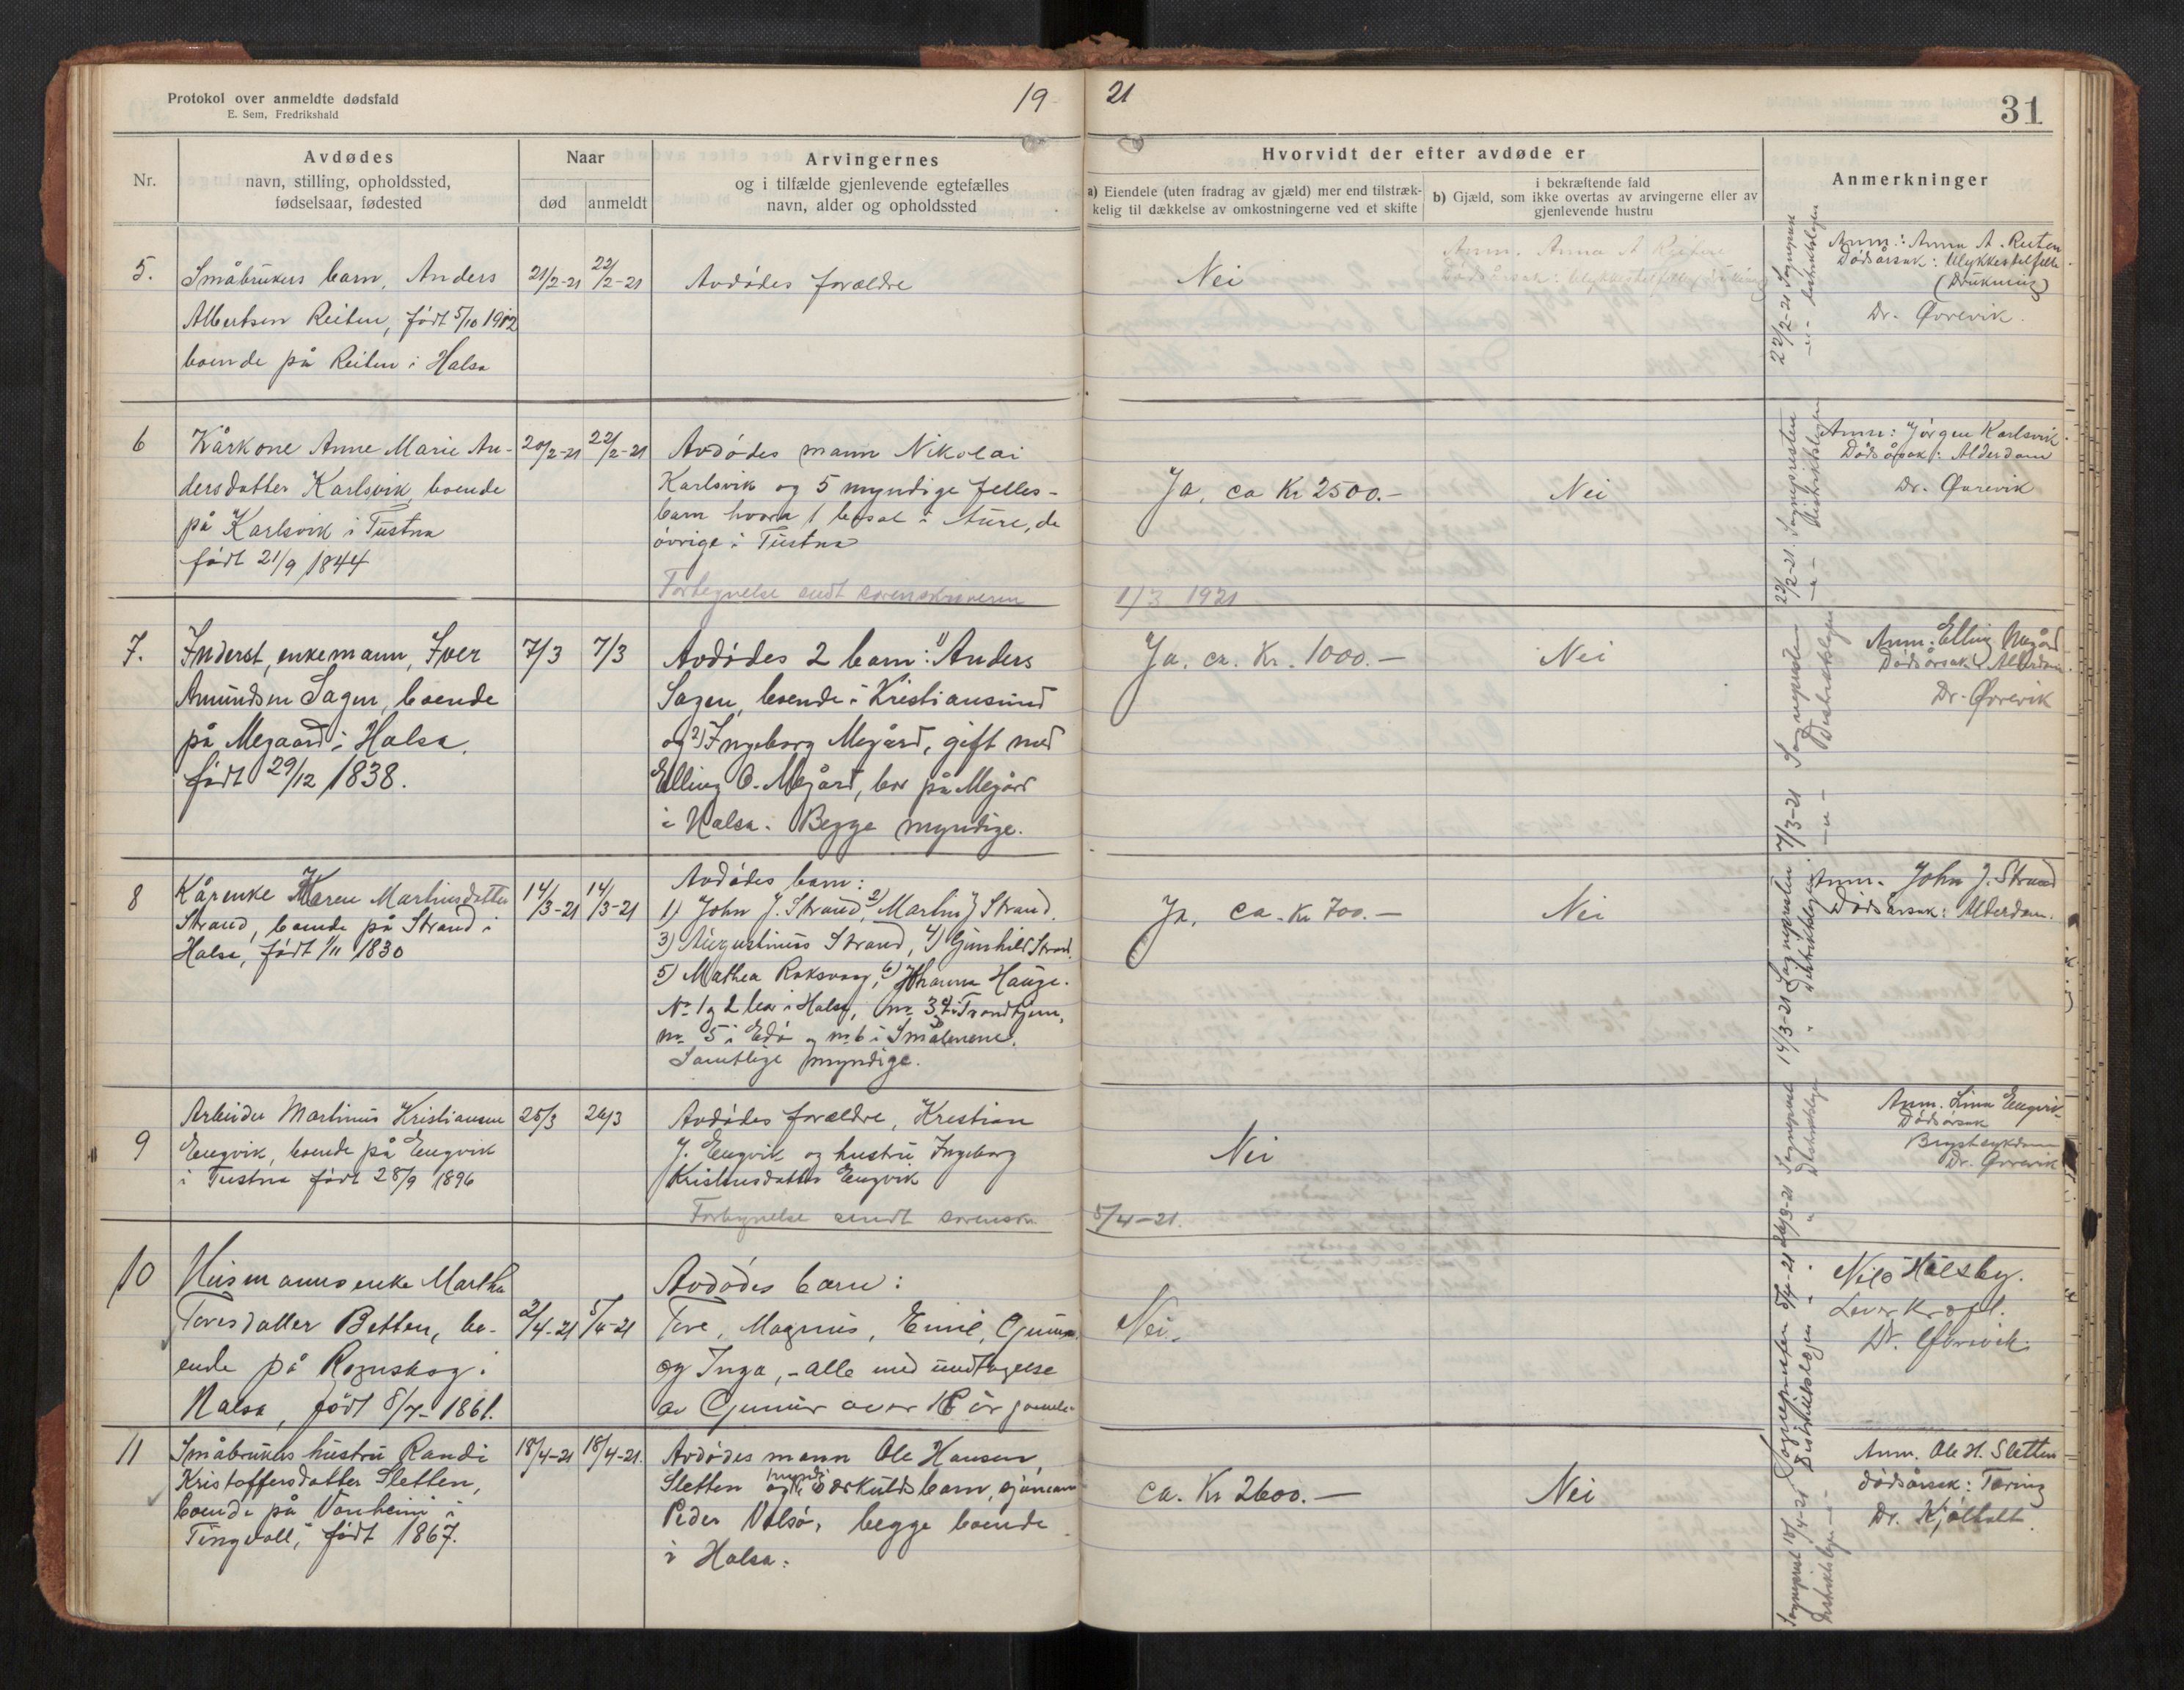 Protokol over anmeldte dødsfald
E. Sem, Fredrikshald
19
21
31
Nr.
Avdødes
navn, stilling, opholdssted,
fødselsaar, fødested
Naar
død
anmeldt
Arvingernes
og i tilfælde gjenlevende egtefælles
navn, alder og opholdssted
Hvorvidt der efter avdøde er
a) Eiendele (uten fradrag av gjæld) mer end tilstræk-
kelig til dækkelse av omkostningerne ved et skifte
i bekræftende fald
b) Gjæld, som ikke overtas av arvingerne eller av
gjenlevende hustru
Anmerkninger
5.
Småbrukers barn, Anders
Albertsen Reiten, født 5/10 1912
boende på Reiten i Halsa
21/2-21
22/2-21
Avdødes forældre
Nei
Anm. Anna A Reiten
22/2-21 Sogneprest
-"- Distriktslegen
Anm.: Anna A. Reiten
Dødsårsak: Ulykkestilfelle
(Drukning)
Dr. Øvrevik.
6
Kårkone Anne Marie An-
dersdatter Karlsvik, boende
på Karlsvik i Tustna
født 21/9 1844
20/2-21
22/2-21
Avdødes mann Nikolai
Karlsvik og 5 myndige felles-
barn hvorav 1 bosat i Aure, de
øvrige i Tustna
Fortegnelse sendt sorenskriveren
1/3 1921
Ja, ca Kr 2500.-
Nei
22/2-21. Sognepresten
-"- Distriktslegen
Anm: Jørgen Karlsvik
Dødsårsak: Alderdom
Dr. Øvrevik
7.
Inderst, enkemann, Iver
Amundsen Sagen, boende
på Megaard i Halsa.
født 29/12 1838.
7/3
7/3
Avdødes 2 barn: 1) Anders
Sagen, boende i Kristiansund
og 2) Ingeborg Megård, gift med
Elling O. Megård, bor på Megård
i Halsa. Begge myndige.
Ja, ca. Kr. 1000.-
Nei
7/3-21 Sognepresten
-"- Distriktslegen
Anm. Elling Megård
Dødsårsak: Alderdom
Dr. Øvrevik
8
Kårenke Karen Martinusdatter
Strand, boende på Strand i
Halsa, født 1/11 1830
14/3-21
14/3-21
Avdødes barn:
1) John J. Strand, 2) Martin J Strand.
3) Augustinus Strand, 4) Gunhild Strand.
5) Mathea Roksvaag, 6) Johanna Hauge.
Nr 1 og 2 bor i Halsa, nr 3, 4 i Trondhjem,
nr 5 i Edø og nr 6 i Smålenene.
Samtlige myndige.
Ja, ca. Kr 700.-
Nei
14/3-21 Sognepresten
" Distriktslegen
Anm. John J. Strand
Dødsårsak: Alderdom.
9
Arbeider Martinus Kristiansen
Engvik, boende på Engvik
i Tustna født 28/9 1896
25/3
26/3
Avdødes forældre, Kristian
J. Engvik og hustru Ingeborg
Kristensdatter Engvik
Fortegnelse sendt sorenskr.
5/4-21.
Nei
26/3-21 Sogneprest
" Distriktslegen
Anm. Lina Engvik
Dødsårsak
Brystsykdom
Dr. Øvrevik
10
Husmannsenke Martha
Toresdatter Betten, bo-
ende på Rognskog i
Halsa, født 8/7-1861.
2/4-21
5/4-21
Avdødes barn:
Tore, Magnus, Emil, Gunnar
og Inga, - alle med undtagelse
av Gunnar over 18 år gamle.
Nei.
5/4-21 Sognepresten
" Distriktslegen
Nils Halsby.
Leverkræft.
Dr. Øvrevik.
11
Småbrukers hustru Randi
Kristoffersdatter Sletten,
boende på Vanheim i
Tingvoll, født 1867.
18/4-21
18/4-21.
Avdødes mann Ole Hansen
Sletten og myndig særkuldsbarn,
Peder Valsø, begge boende
i Halsa.
ca. Kr 2600.-
Nei
Sogneprest 18/4-21
Distriktslegen -"-
Anm. Ole H. Sletten
dødsårsak: Tæring
Dr. Kjølholt.